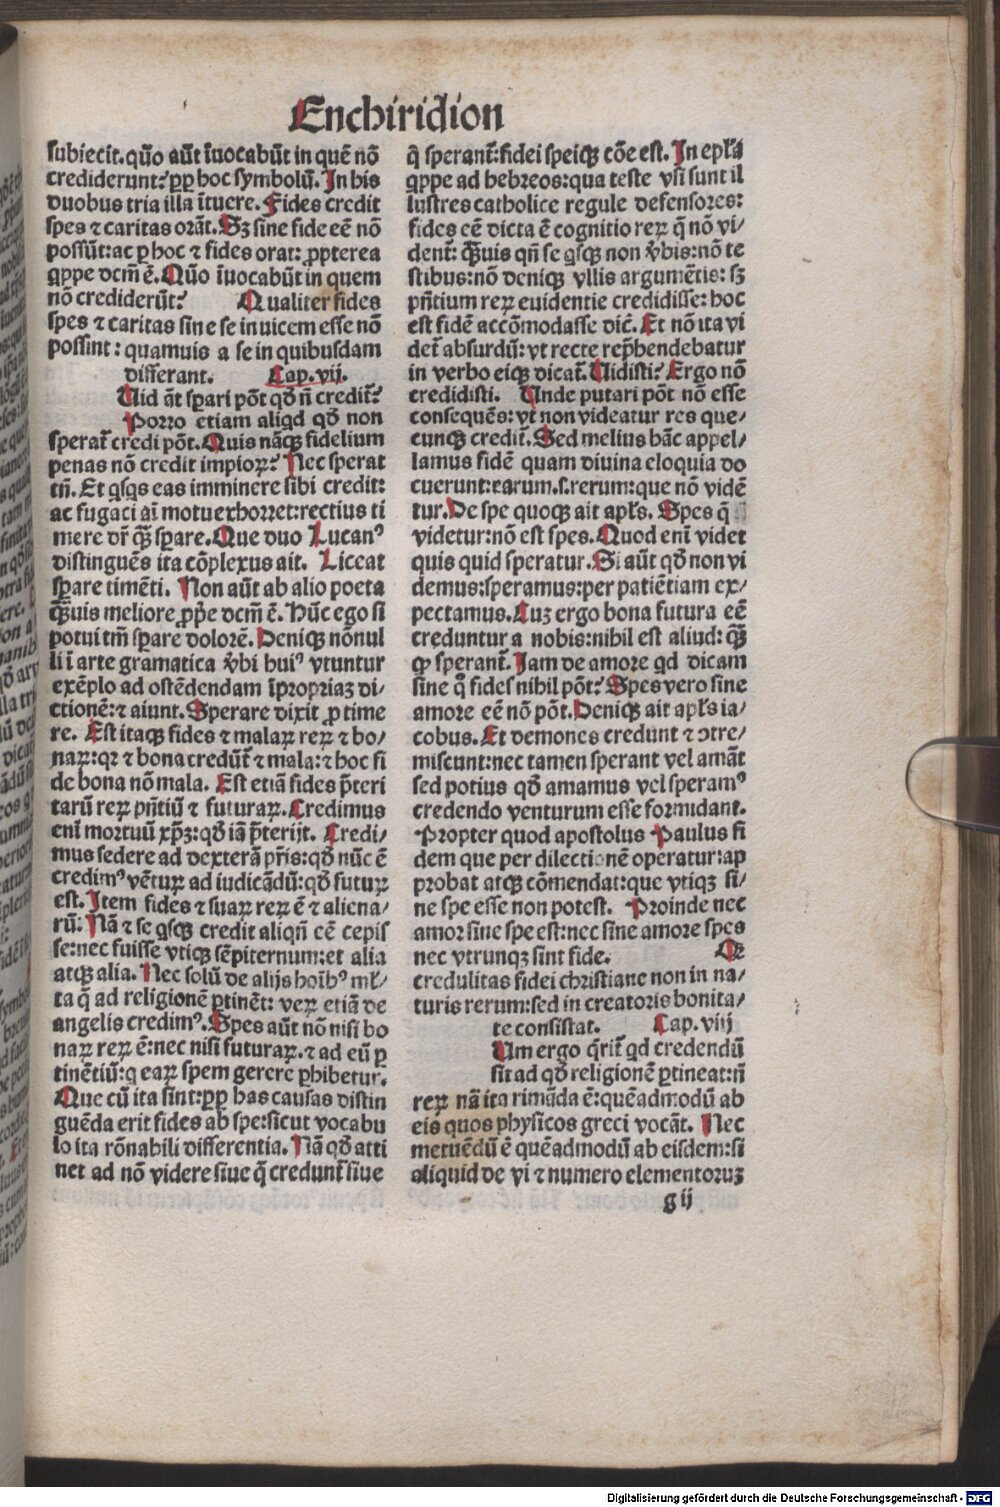 Enchiridion
subiecit. quõ aũt ĩuocabũt in quẽ nõ
crediderunt? ꝓp hoc symbolũ. In his
duobus tria illa ĩtuere. Fides credit
spes ⁊ caritas orãt. Sꝫ sine fide eẽ nõ
possũt: ac ꝑ hoc ⁊ fides orat: ꝓpterea
q̃ppe dcm̃ ẽ. Quõ ĩuocabũt in quem
nõ crediderũt? Qualiter fides
spes ⁊ caritas sine se inuicem esse nõ
possint: quamuis a se in quibusdam
differant. Cap. vii.
Uid ãt sꝑari põt qđ ñ credit̃?
Porro etiam aliqd qđ non
sperat̃ credi põt. Quis nãqꝫ fidelium
penas nõ credit impioꝝ? Nec sperat
tñ. Et qsqs eas imminere sibi credit:
ac fugaci aĩ motu exhorret: rectius ti
mere dr̃ qꝫ̃ sꝑare. Que duo Lucanꝰ
distinguẽs ita cõplexus ait. Liceat
sꝑare timẽti. Non aũt ab alio poeta
qꝫ̃uis meliore ꝓp̃e dcm̃ ẽ. Hũc ego si
potui tm̃ sꝑare dolorẽ. Deniqꝫ nõnul
li ĩ arte gramatica v̄bi huiꝰ vtuntur
exẽplo ad ostẽdendam ĩpropriaꝫ di/
ctionẽ: ⁊ aiunt. Sperare dixit ꝓ time
re. Est itaqꝫ fides ⁊ malaꝝ reꝝ ⁊ bo/
naꝝ: qꝛ ⁊ bona credũt̃ ⁊ mala: ⁊ hoc fi
de bona nõ mala. Est etiã fides p̃teri
tarũ reꝝ pñtiũ ⁊ futuraꝝ. Credimus
enĩ mortuũ xp̃ꝫ: qđ iã p̃terijt. Credi/
mus sedere ad dexterã pr̃is: qđ nũc ẽ
credimꝰ vẽtuꝝ ad iudicãdũ: qđ futuꝝ
est. Item fides ⁊ suaꝝ reꝝ ẽ ⁊ aliena/
rũ: Nã ⁊ se qsqꝫ credit aliqñ eẽ cepis
se: nec fuisse vtiqꝫ sẽpiternum: et alia
atqꝫ alia. Nec solũ de alijs hoĩbꝰ ml̃/
ta q̃ ad religionẽ ꝑtinẽt: veꝝ etiã de
angelis credimꝰ. Spes aũt nõ nisi bo
naꝝ reꝝ ẽ: nec nisi futuraꝝ. ⁊ ad eũ ꝑ
tinẽtiũ: q eaꝝ spem gerere ꝑhibetur.
Que cũ ita sint: ꝓp has causas distin
guẽda erit fides ab spe: sicut vocabu
lo ita rõnabili differentia. Nã qđ atti
net ad nõ videre siue q̃ credunt̃ siue
q̃ sperant̃: fidei speiqꝫ cõe est. In epl̃a
q̃ppe ad hebreos: qua teste vsi sunt il
lustres catholice regule defensores:
fides eẽ dicta ẽ cognitio reꝝ q̃ nõ vi/
dent̃: Qꝫ̃uis qñ se qsqꝫ non v̄bis: nõ te
stibus: nõ deniqꝫ vllis argumẽtis: sꝫ
pñtium reꝝ euidentie credidisse: hoc
est fidẽ accõmodasse dic̃. Et nõ ita vi
det̃ absurdũ: vt recte rep̃hendebatur
in verbo eiqꝫ dicat̃. Uidisti? Ergo nõ
credidisti. Unde putari põt nõ esse
consequẽs: vt non videatur res que/
cunqꝫ credit̃. Sed melius hãc appel/
lamus fidẽ quam diuina eloquia do
cuerunt: earum .s. rerum: que nõ vidẽ
tur. De spe quoqꝫ ait apl̃s. Spes q̃
videtur: nõ est spes. Quod enĩ videt
quis quid speratur. Si aũt qđ non vi
demus: speramus: per patiẽtiam ex/
pectamus. Cuꝫ ergo bona futura eẽ
creduntur a nobis: nihil est aliud: qꝫ̃
ꝙ sperant̃. Iam de amore qd dicam
sine q̊ fides nihil põt? Spes vero sine
amore eẽ nõ põt. Deniqꝫ ait apl̃s ia/
cobus. Et demones credunt ⁊ ↄtre/
miscunt: nec tamen sperant vel amãt
sed potius qđ amamus vel speramꝰ
credendo venturum esse formidant.
Propter quod apostolus Paulus fi
dem que per dilectionẽ operatur: ap
probat atqꝫ cõmendat: que vtiqꝫ si/
ne spe esse non potest. Proinde nec
amor sine spe est: nec sine amore spes
nec vtrunqꝫ sint fide. Qꝛ
credulitas fidei christiane non in na/
turis rerum: sed in creatoris bonita/
te consistat. Cap. viij
Um ergo q̃rit̃ qd credendũ
sit ad qđ religionẽ ꝑtineat: ñ
reꝝ nã ita rimãda ẽ: quẽadmodũ ab
eis quos physicos greci vocãt. Nec
metuẽdũ ẽ quẽadmodũ ab eisdem: si
aliquid de vi ⁊ numero elementoruꝫ
g ij
Digitalisierung gefördert durch die Deutsche Forschungsgemeinschaft - DFG